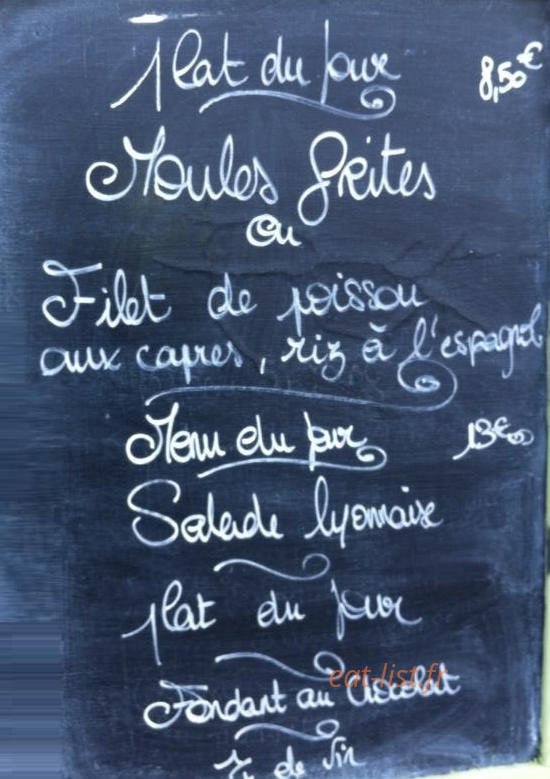 Plat du jour 8,50€
Moules frites
ou
Filet de poisson
aux capres, riz à l'espagnol
Menu du jour 13€00
Salade lyonnaise
plat du jour
eat-list.fr
Fondant au Chocolat
de vin